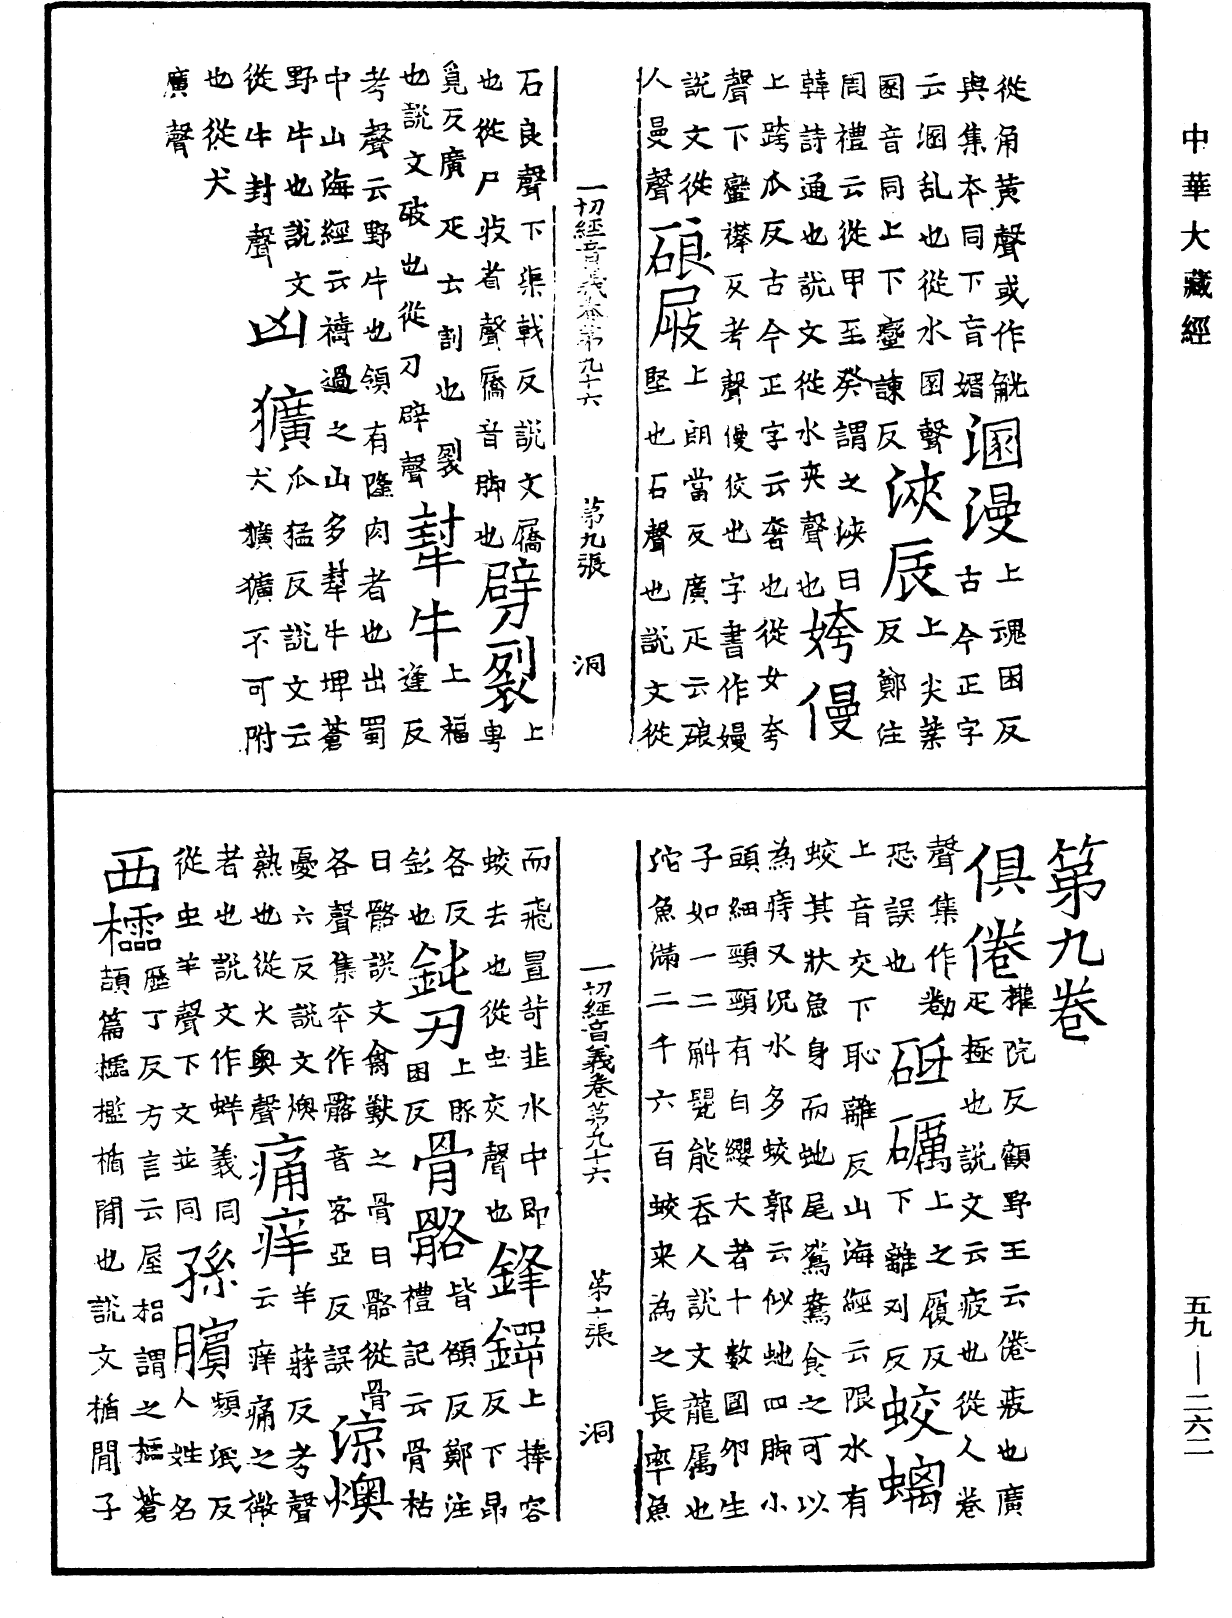 中華大藏經
從角黄聲或作觥溷漫上魂困反
與集本同下音媚古今正字
云溷乱也從水圂聲浹辰上尖葉
圂音同上下蠻諫反反鄭注
周禮云從甲至癸謂之浹日
韓詩通也說文從水夾聲也姱僈
上跨瓜反古今正字云奢也從女夸
聲下蠻襻反考聲僈佼也字書作嫚
說文從上朗當反廣疋云硠
人曼聲硠屐堅也石聲也說文從
一切經音義卷第九十六 第九張 洞
石良聲下渠戟反說文屩上
也從尸𢻃省聲屩音脚也劈裂粤
覓反廣疋云割也裂上福
也說文破也從刀辟聲犎牛逢反
考聲云野牛也領有隆肉者也出蜀
中山海經云禱過之山多犎牛埤蒼
野牛也說文瓜猛反說文云
從牛封聲凶獷犬獷獷不可附
也從犬
廣聲
第九卷
俱倦權院反顧野王云倦疲也廣
疋極也說文云疲也從人卷
聲集作勌砥礪上之履反
恐誤也下離刈反蛟螭
上音交下恥離反山海經云限水有
蛟其狀魚身而虵尾鴛鴦食之可以
為痔又況水多蛟郭云似虵四脚小
頭細頸頸有白纓大者十數圍卵生
子如一二斛甖能吞人說文龍属也
池魚滿二千六百蛟来為之長率魚
一切經音義卷第九十六 第十張 洞
而飛置笱韭水中即上捧容
蛟去也從虫交聲也鋒鍔反下昂
各反上豚皆頟反鄭注
釤也鈍刃困反骨骼禮記云骨枯
曰骼說文禽獸之骨曰骼從骨
各聲集夲作髂音客亞反誤涼燠
憂六反說文燠羊蔣反考聲
熱也從火奥聲痛痒云痒痛之微
者也說文作蛘義同頻泯反
從虫羊聲下文並同孫臏人姓名
西櫺歷丁反方言云屋梠謂之櫺蒼
頡篇櫺檻楯間也說文楯間子
五九—二六二